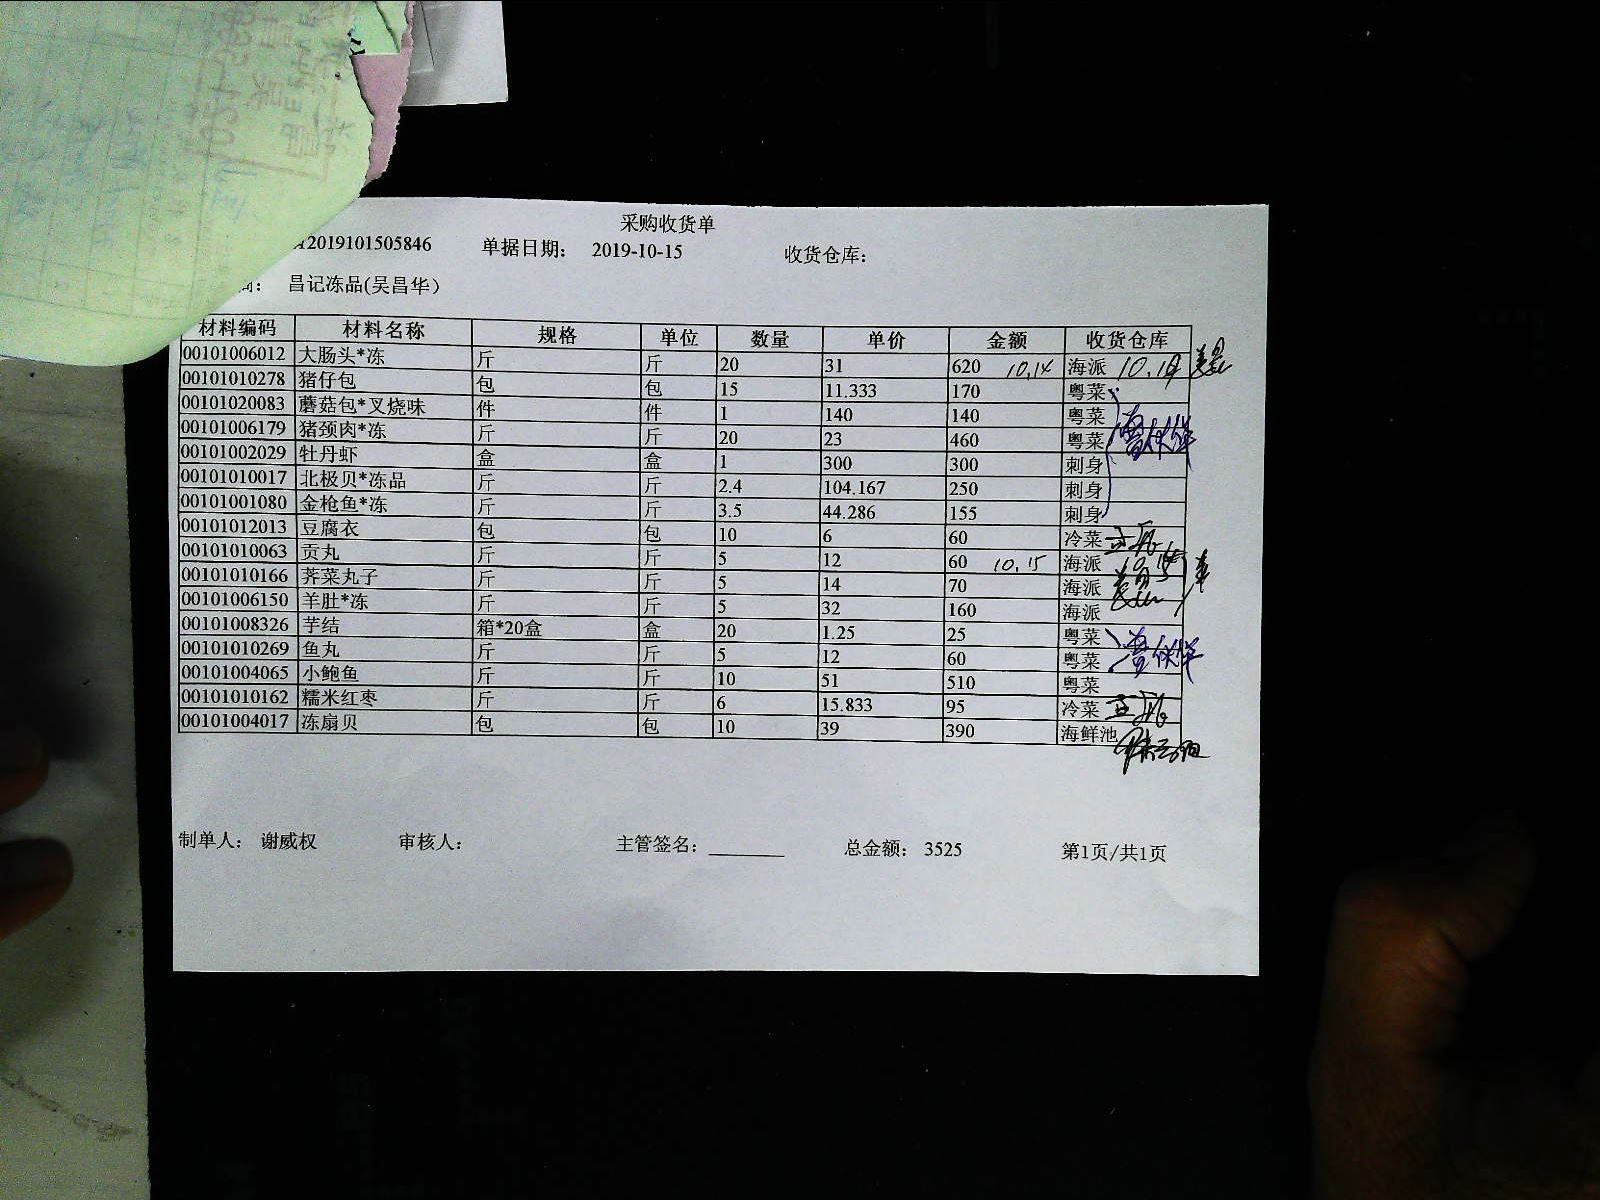 采购收货单
2019101505846 单据日期： 2019-10-15 收货仓库：
昌记冻品(吴昌华）
材料编码 材料名称 规格 单位 数量 单价 金额 收货仓库
00101006012 大肠头*冻 斤 斤 20 31 620 10.14 海派
00101010278 猪仔包 包 包 15 11.333 170 粤菜
00101020083 蘑菇包*叉烧味 件 件 1 140 140 粤菜
00101006179 猪颈肉*冻 斤 斤 20 23 460 粤菜
00101002029 牡丹虾 盒 盒 1 300 300 刺身
00101010017 北极贝*冻品 斤 斤 2.4 104.167 250 刺身
00101001080 金枪鱼*冻 斤 斤 3.5 44.286 155 刺身
00101012013 豆腐衣 包 包 10 6 60 冷菜
00101010063 贡丸 斤 斤 5 12 60 10.15 海派
00101010166 荠菜丸子 斤 斤 5 14 70 海派
00101006150 羊肚*冻 斤 斤 5 32 160 海派
00101008326 芋结 箱*20盒 盒 20 1.25 25 粤菜
00101010269 鱼丸 斤 斤 5 12 60 粤菜
00101004065 小鲍鱼 斤 斤 10 51 510 粤菜
00101010162 糯米红枣 斤 斤 6 15.833 95 冷菜
00101004017 冻扇贝 包 包 10 39 390 海鲜池
制单人： 谢威权 审核人： 主管签名： 总金额： 3525 第1页/共1页